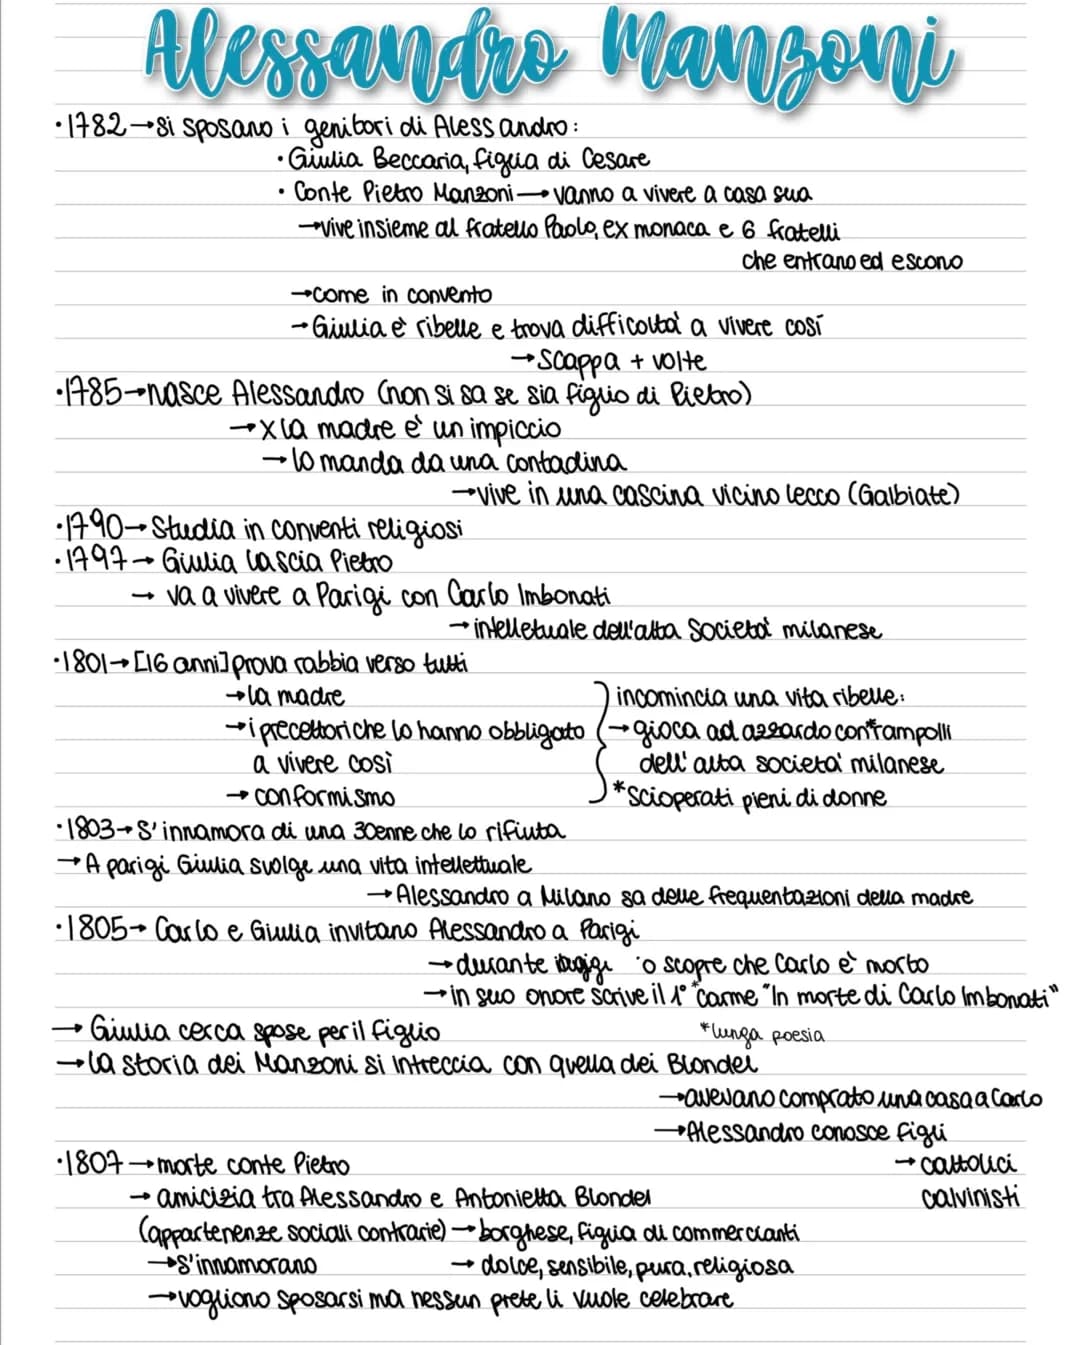 Alessandro Manzoni
·1782→si sposano i genitori di Alessandro:
·Giulia Beccaria, figlia di Cesare
· Conte Pietro Manzoni→vanno a vivere a casa sua
→vive insieme al fratello Paolo, ex monaca e 6 fratelli
che entrano ed escono
→come in convento
→Giulia è ribelle e trova difficoltà a vivere così
→scappa + volte
·1785→nasce Alessandro (non si sa se sia figlio di Pietro)
→x la madre è un impiccio
→lo manda da una contadina
→vive in una cascina vicino lecco (Galbiate)
·1790→Studia in conventi religiosi
·1797→ Giulia lascia Pietro
→ va a vivere a Parigi con Carlo Imbonati
→intelletuale dell'alta società milanese
·1801→[16 anni] prova rabbia verso tutti
→la madre
→i precettori che lo hanno obbligato
a vivere così
→ conformismo
incomincia una vita ribelle:
→gioca ad azzardo con *rampolli
dell'alta società milanese
*scioperati pieni di donne
·1803→S'innamora di una 30enne che lo rifiuta
→A parigi Giulia svolge una vita intellettuale
→Alessandro a Milano sa delle frequentazioni della madre
·1805→ Carlo e Giulia invitano Alessandro a Parigi
→durante 'o scopre che Carlo è morto
→in suo onore scrive il 1° *carme "In morte di Carlo Imbonati"
*lunga poesia
→ Giulia cerca spose per il figlio
→la storia dei Manzoni si intreccia con quella dei Blondel
→avevano comprato una casa a Carlo
→Alessandro conosce figli
→ cattolici
calvinisti
·1807→morte conte Pietro
→ amicizia tra Alessandro e Antonietta Blondel
(appartenenze sociali contrarie)→borghese, figlia di commercianti
→S'innamorano → dolce, sensibile, pura, religiosa
→vogliono sposarsi ma nessun prete li vuole celebrare